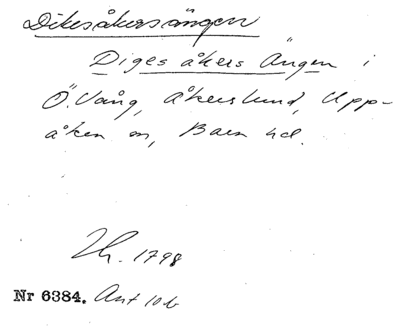 Dikesåkersängen
Diges åkers Ängen i
Ö. Vång, Åkerslund, Upp-
åkra sn, Bara hd.
Zh. 1798
Nr 6384. Ant 10b